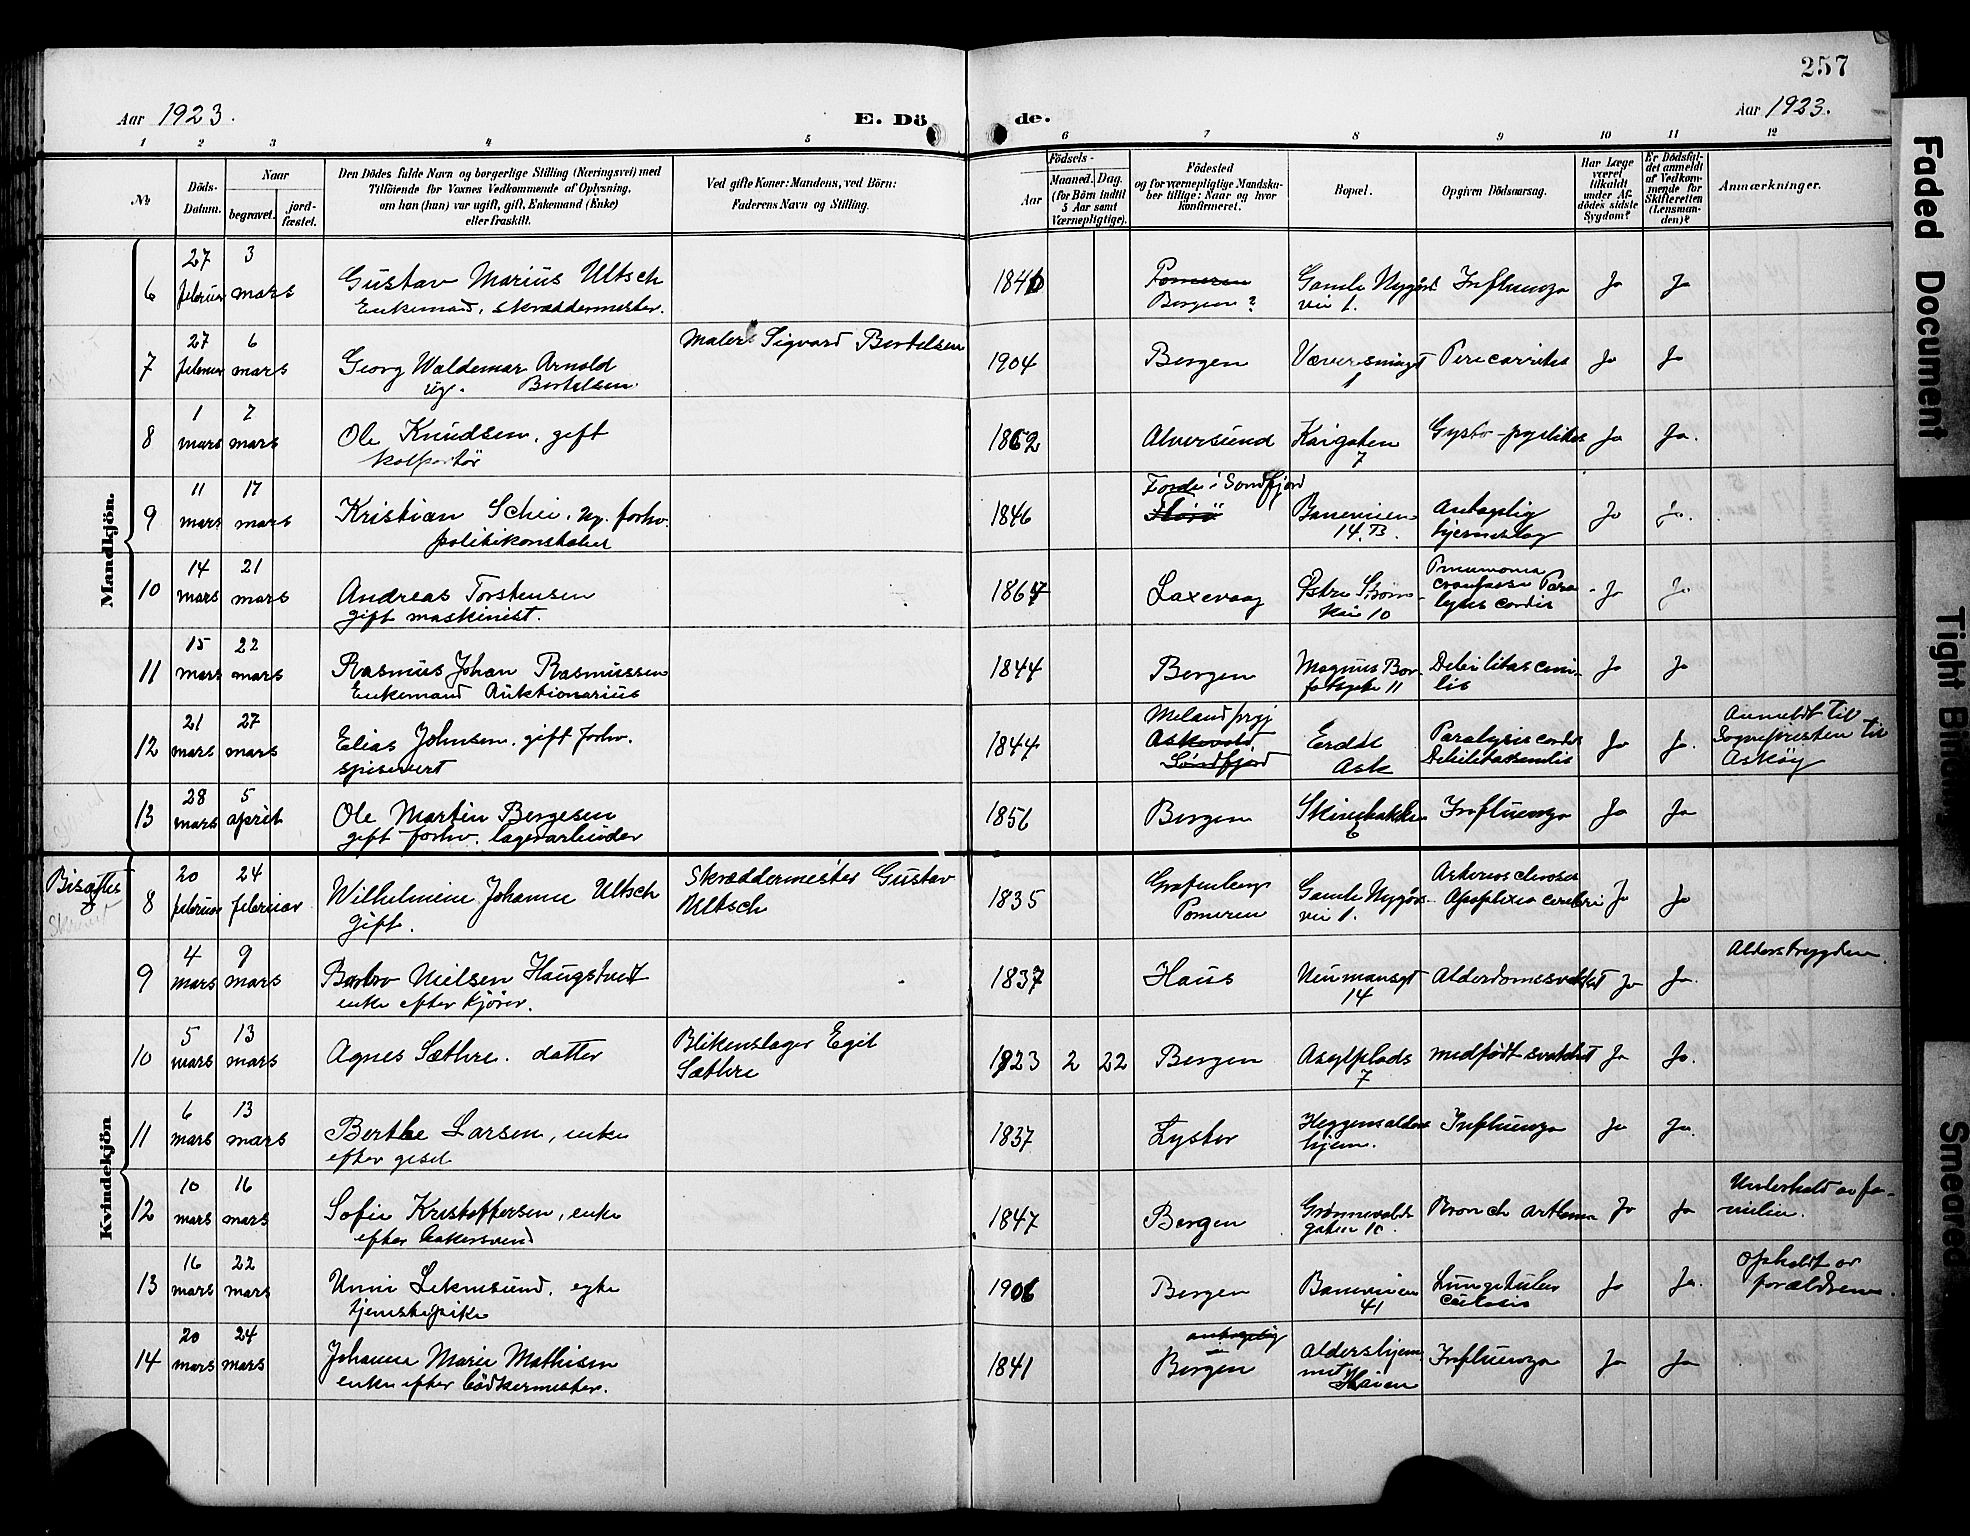 257
Aar 1923.
E. Dö
de.
Aar 1923.
1 2 3 4 5 6 7 8 9 10 11 12
№
Döds-
Datum.
Naar
begravet.
jord-
fæstet.
Den Dödes fulde Navn og borgerlige Stilling (Næringsvei) med
Tilföiende for Voxnes Vedkommende af Oplysning,
om han (hun) var ugift, gift, Enkemand (Enke)
eller fraskilt.
Ved gifte Koner: Mandens, ved Börn:
Faderens Navn og Stilling.
Födsels-
Aar
Maaned. Dag.
(for Börn indtil
5 Aar samt
Værnepligtige).
Födested
og for værnepligtige Mandska-
ber tillige: Naar og hvor
konfirmeret.
Bopæl.
Opgiven Dödsaarsag.
Har Læge
været
tilkaldt
under Af-
dödes sidste
Sygdom?
Er Dödsfal-
det anmeldt
af Vedkom-
mende for
Skifteretten
(Lensman-
den)?
Anmærkninger.
Mandkjön.
6 27 februar 3 mars
Gustav Marius Ultsch
Enkemand, skræddermester.
Pomeren
Bergen?
Gamle Nygårds
vei 1.
Influenza
Ja Ja
7 27 februar 6 mars
Georg Waldemar Arnold
ug. Bertelsen.
Maler Sigvard Bertelsen
1904
Bergen
1
Ja Ja
8 1 mars 7 mars
Ole Knudsen, gift
kolportör
1862
Alversund
Kaigaten
7
Ja Ja.
9 11 mars 17 mars
Kristian Schei, ug. forhv.
politikonstabel
1846
Förde i Sondfjord
Florö
Baneveien
14.B.
Antagelig
hjerneslag
Ja Ja.
10 14 mars 21 mars
Andreas Torstensen
gift maskinist.
Laxevaag
Østre Strøm-
kai 10
Pneumonia
crouposa Para
lysis cordis
Ja Ja
11 15 mars 22 mars
Rasmus Johan Rasmussen
Enkemand Auktionarius
1844
Bergen
Magnus Bar-
fotsgate 11
Debilitas cini-
lis
Ja Ja
12 21 mars 27 mars
Elias Johnsen, gift forhv.
spisevert
1844
Meland prgj
Askevold
Söndfjord
Erdal
Ask
Paralysis cordis
Debilitas senilis
Ja Ja.
Anmeldt til
Sognepresten til
Asköy
13 28 mars 5 april
Ole Martin Bergesen
gift forhv. lagerarbeider
1856
Bergen
Skivebakken
6
Influenza
Ja Ja
Bisættes
Kvindekjön
8 20 februar 24 februar
Wilhelmine Johanne Ultsch
gift.
Skræddermester Gustav
Ultsch
1835
Grafenberg
Pomeren
Gamle Nygårds-
vei 1.
Arterioschlerose
Apoplexia cerebri
Ja Ja
9 4 mars 9 mars
Barbro Nielsen Haugstvedt
enke efter kjörer.
1837
Haus
Neumansgt
14
Alderdomssvakhet
Ja Ja.
Alderstrygden.
10 5 mars 13 mars
Agnes Sæthre. datter
Blikenslager Egil
Sæthre
1923 2 22
Bergen
Asylplads
7
medfödt svakhet
Ja Ja.
11 6 mars 13 mars
Berthe Larsen, enke
efter gesel
1837
Lyster
Heggens alders
hjem.
Influenza
Ja Ja.
12 10 mars 16 mars
Sofie Kristoffersen, enke
efter bakersvend
1847
Bergen
Grönnevolds
gaten 10.
Bronch asthma
Ja Ja
Underhold av fa-
milien.
13 16 mars 22 mars
Unni Leknesund, egte
tjenstepike
1906
Bergen
Baneveien
41
Lungetuber
culosis
Ja Ja.
Opholdt av
forældrene.
14 20 mars 24 mars
Johanne Marie Mathisen
enke efter bödkermester.
1841
antagelig
Bergen
Aldershjem
met
Haien
Influenza
Ja Ja
Faded Document
Tight Binding
Smeared